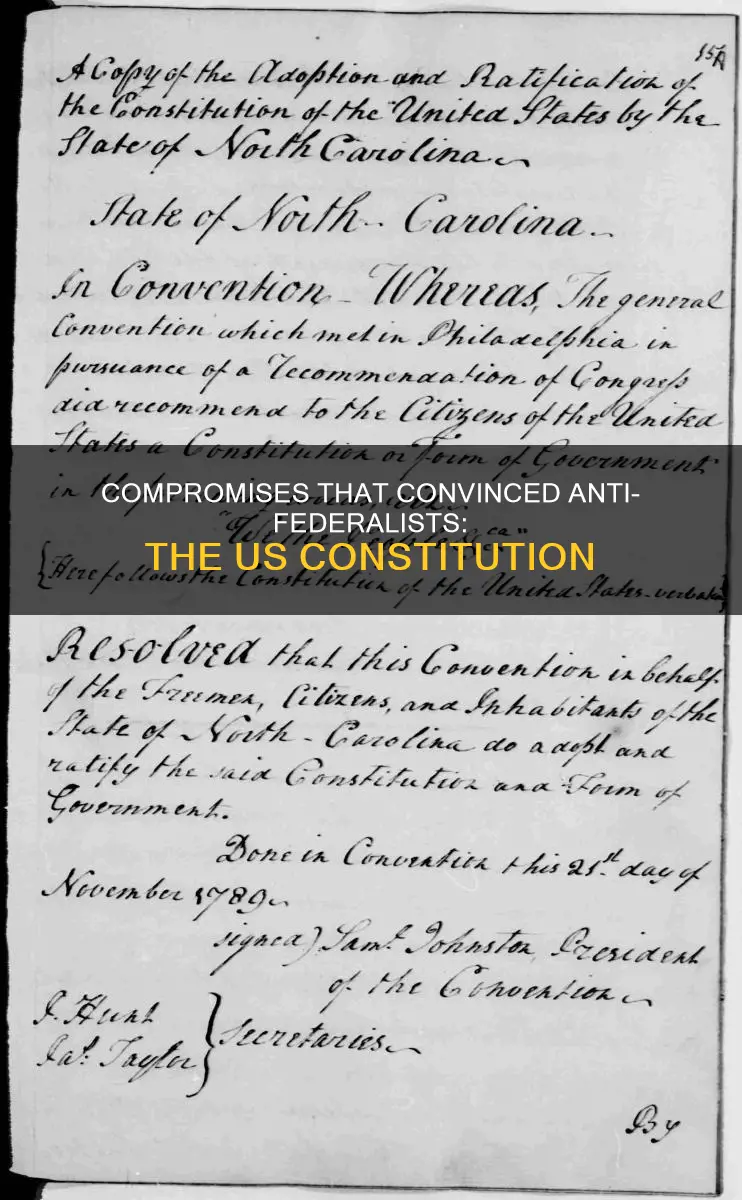 A Copy of the Adoption and Ratification of
the Constitution of the United States by the
State of North Carolina
State of North Carolina
In Convention Whereas, The general
Convention which met in Philadelphia in
pursuance of a Recommendation of Congress
did recommend to the Citizens of the United
States a Constitution or Form of Government
in the
COMPROMISES THAT CONVINCED ANTI-
FEDERALISTS:
THE US CONSTITUTION
{Here follows the Constitution of the United States verbatim}
Resolved that this Convention in behalf
of the Freemen, Citizens, and Inhabitants of the
State of North-Carolina do adopt and
ratify the said Constitution and Form of
Government.
Done in Convention this 21st day of
November 1789
signed) Saml. Johnston, President
of the Convention
J. Hunt
Jas. Taylor } Secretaries
By